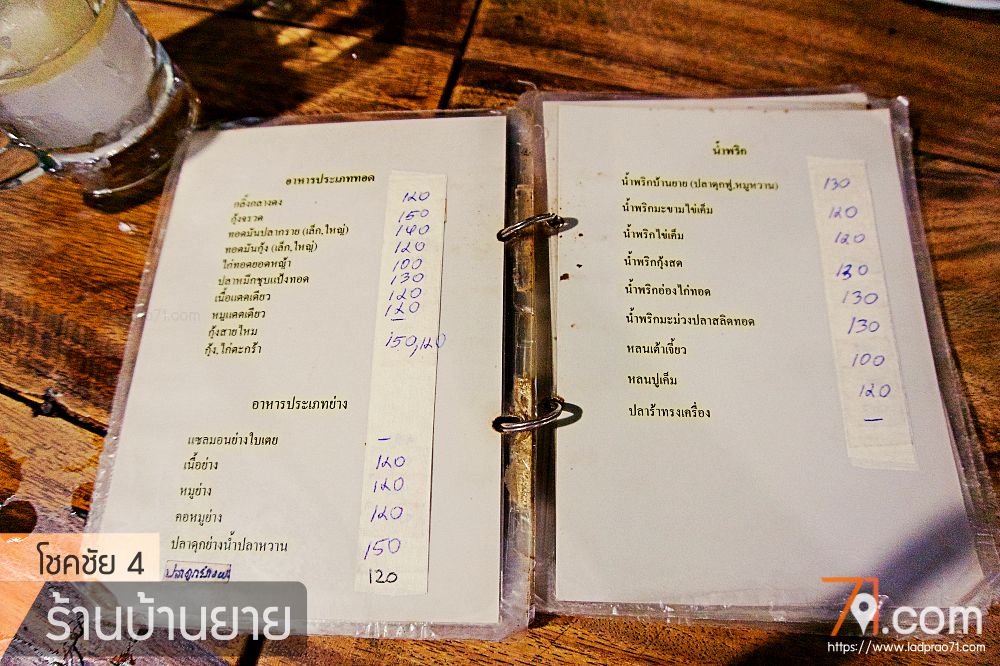 อาหารประเภททอด
กลิ้งกลางดง 120
กุ้งจรวด 150
ทอดมันปลากราย (เล็ก,ใหญ่) 140
ทอดมันกุ้ง (เล็ก,ใหญ่) 120
ไก่ทอดยอดหญ้า 100
ปลาหมึกชุบแป้งทอด 130
เนื้อแดดเดียว 120
หมูแดดเดียว 120
กุ้งสายไหม –
กุ้ง,ไก่ตะกร้า 150,120
อาหารประเภทย่าง
แซลมอนย่างใบเตย –
เนื้อย่าง 120
หมูย่าง 120
คอหมูย่าง 120
ปลาดุกย่างน้ำปลาหวาน 150
120
น้ำพริก
น้ำพริกบ้านยาย (ปลาดุกฟู,หมูหวาน) 130
น้ำพริกมะขามไข่เค็ม 120
น้ำพริกไข่เค็ม 120
น้ำพริกกุ้งสด 130
น้ำพริกอ่องไก่ทอด 130
น้ำพริกมะม่วงปลาสลิดทอด 130
หลนเต้าเจี้ยว 100
หลนปูเค็ม 120
ปลาร้าทรงเครื่อง –
โชคชัย 4
ร้านบ้านยาย
71.com
https://www.ladprao71.com